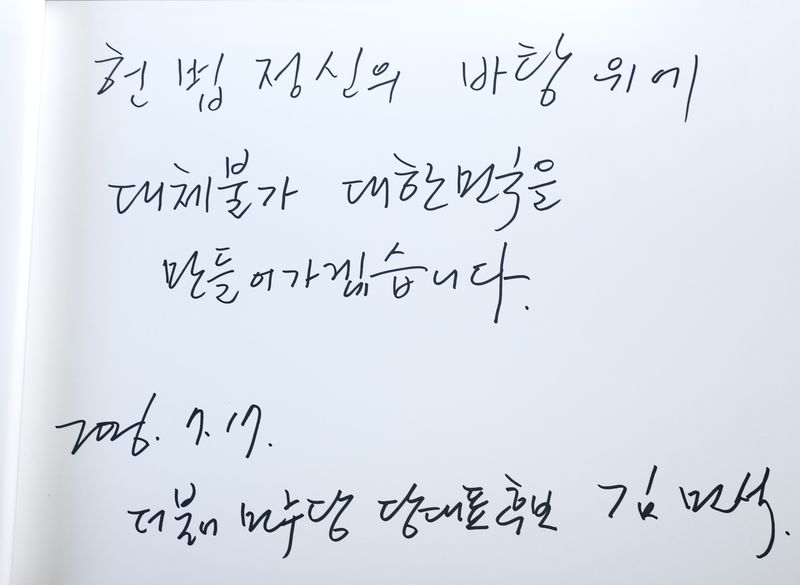 헌법정신의 바탕 위에
대체불가 대한민국을
만들어가겠습니다.
2026. 7. 17.
더불어민주당 당대표후보 김민석.